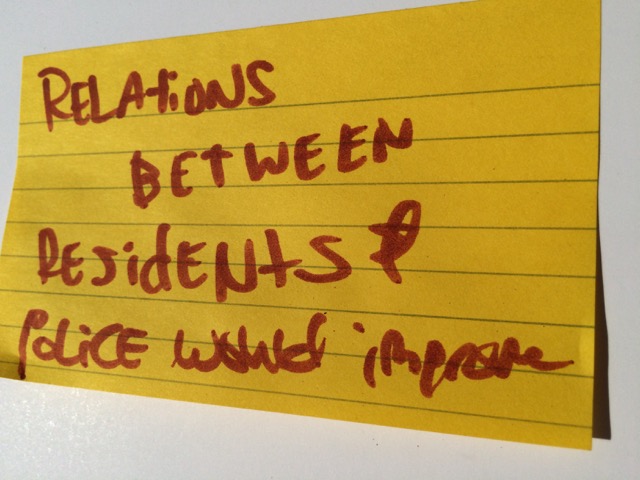 RELAtiONS
BETWEEN
RESidENtS &
POLiCE would improve